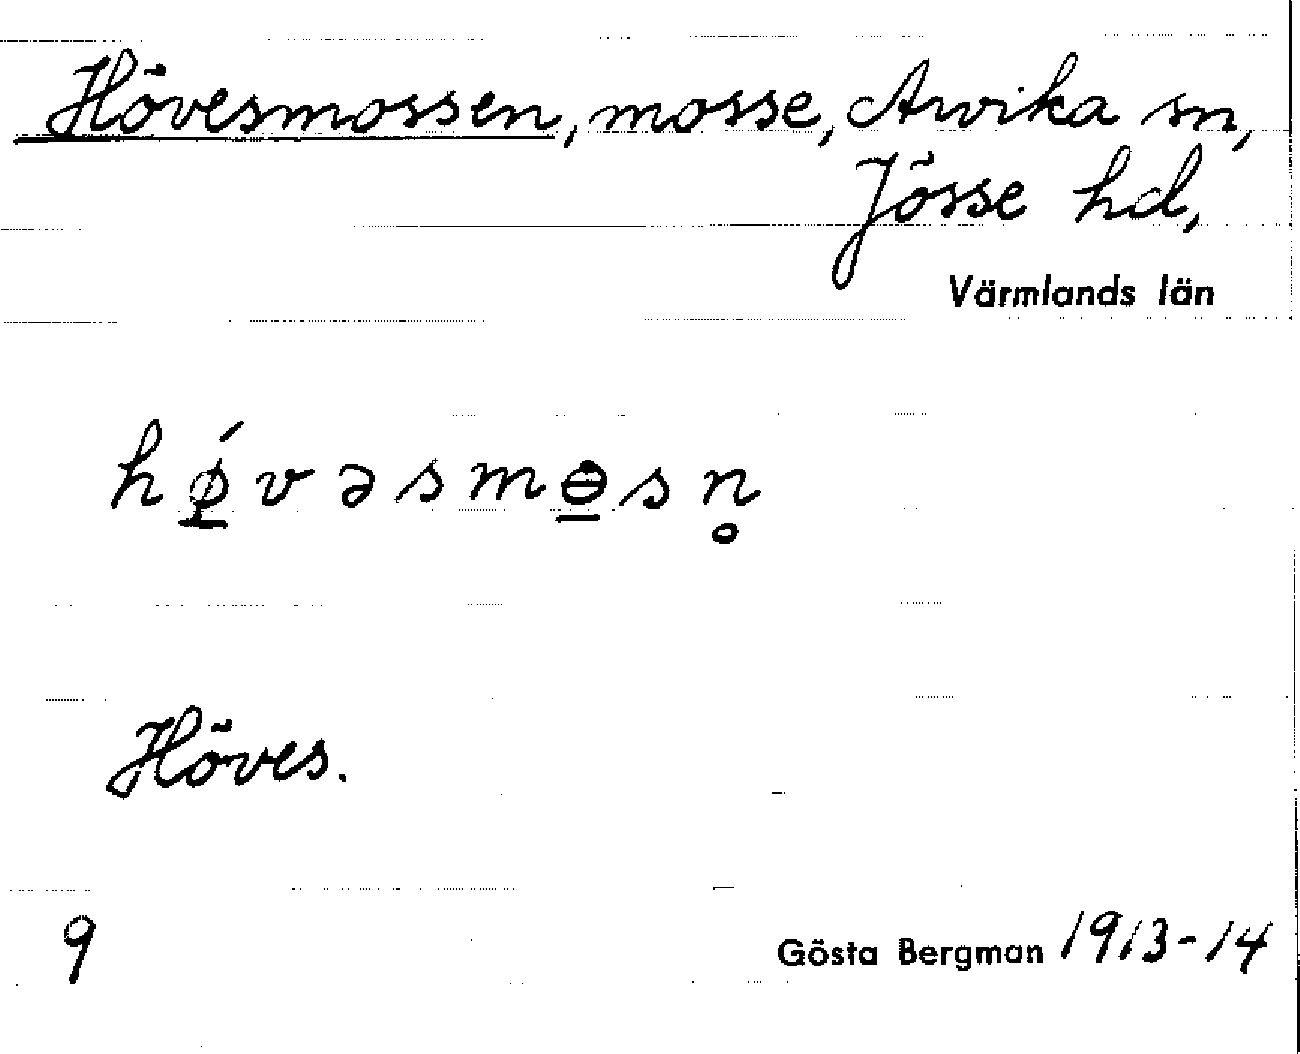 Hövesmossen, mosse, Arvika sn,
Jösse hd,
Värmlands län
hǿ̱vəsmɵ̱sn̥
Höves.
9
Gösta Bergman 1913-14